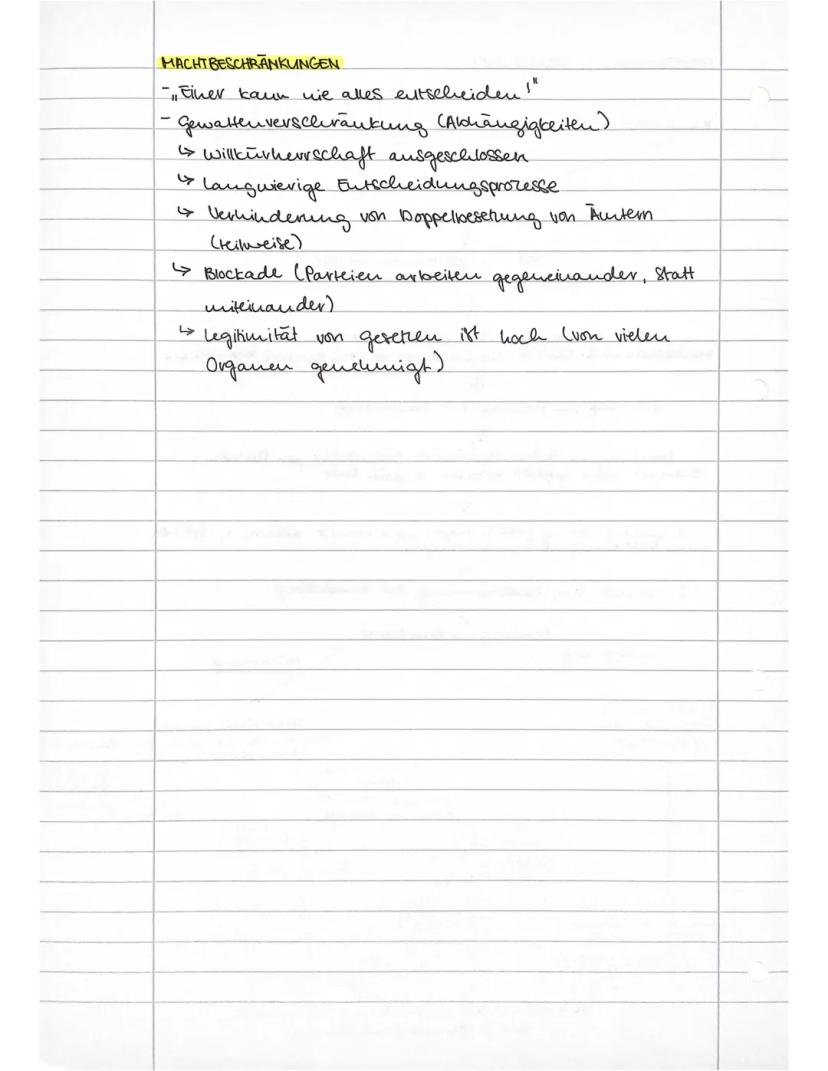 MACHTBESCHRÄNKUNGEN
- „Einer kann nie alles entscheiden!"
- Gewaltenverschränkung (Abhängigkeiten)
↳ Willkürherrschaft ausgeschlossen
↳ Langwierige Entscheidungsprozesse
↳ Verhinderung von Doppelbesetzung von Ämtern
(teilweise)
↳ Blockade (Parteien arbeiten gegeneinander, statt
miteinander)
↳ Legitimität von Gesetzen ist hoch (von vielen
Organen genehmigt)